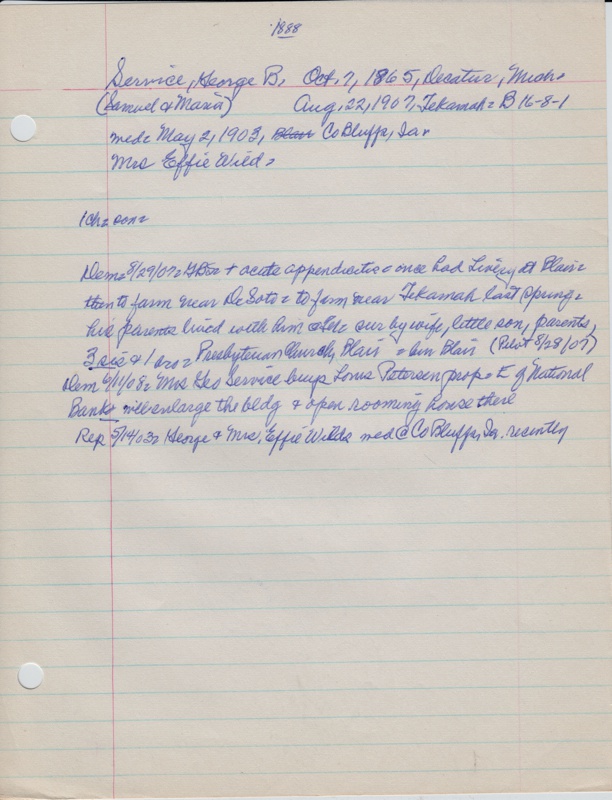 1888
Service, George B. Oct. 7, 1865, Decatur, Mich.
(Samuel & Maria) Aug. 22, 1907, Tekamah = B 16-8-1
med. May 2, 1903, Blair Co Bluffs, Ia.
Mrs Effie Wild.
1 Ch = son =
Dem = 8/29/07 = + acute appendicitis = once had Livery at Blair =
then to farm near DeSoto = to farm near Tekamah last spring =
his parents lived with him = sur by wife, little son, parents,
3 sis & 1 bro = Presbyterian Church, Blair = bur Blair (Pilot 8/28/07)
Dem 6/11/08 = Mrs Geo Service buys Louis Petersen prop = E of National
Bank = will enlarge the bldg & open rooming house there
Rep 5/14/03 = George & Mrs. Effie Wilds med @ Co Bluffs, Ia. recently